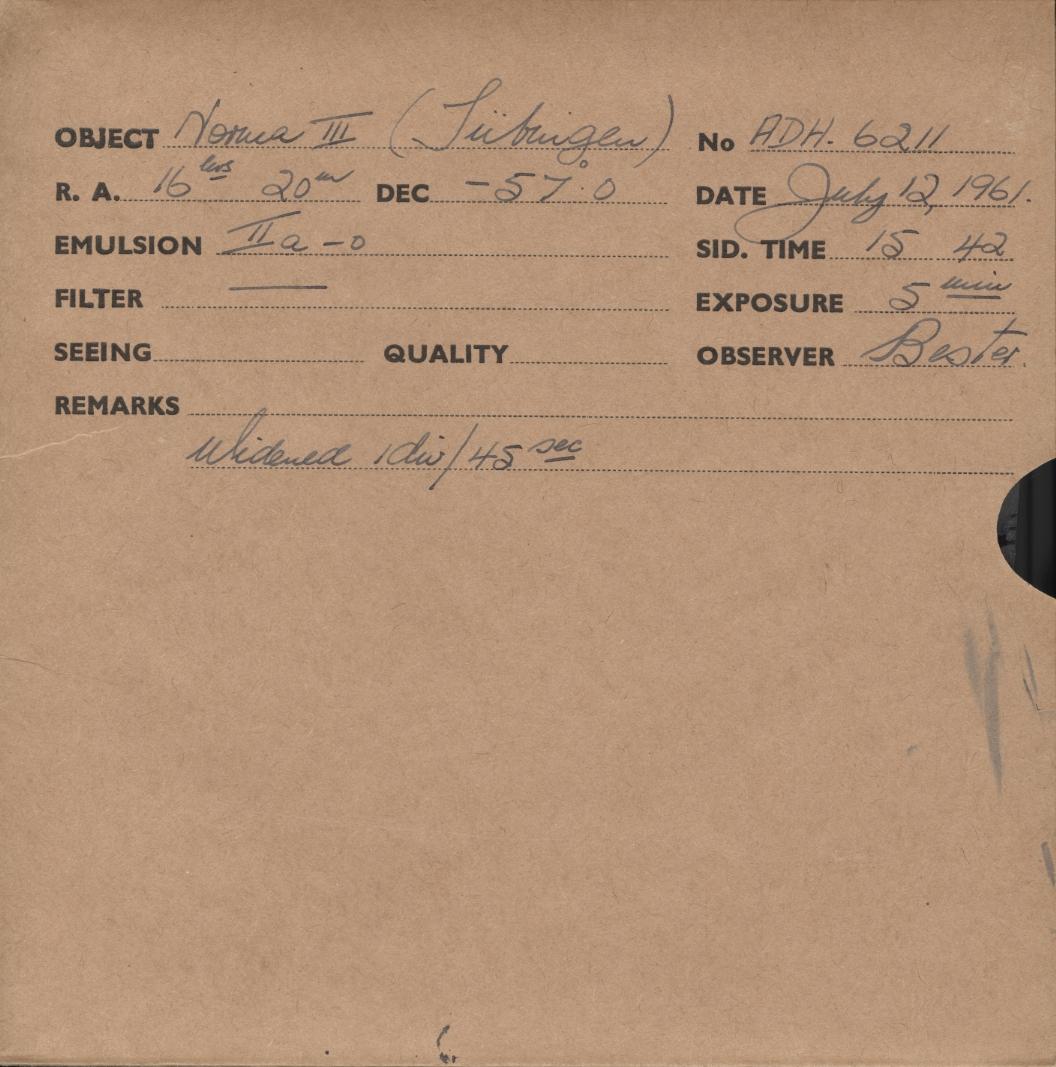 OBJECT Norma III (Tübingen) No ADH. 6211
R. A. 16 hrs 20 m DEC -57°.0 DATE July 12, 1961.
EMULSION IIa-o SID. TIME 15 42
FILTER — EXPOSURE 5 min
SEEING QUALITY OBSERVER Bester.
REMARKS
Widened 1div/45 sec